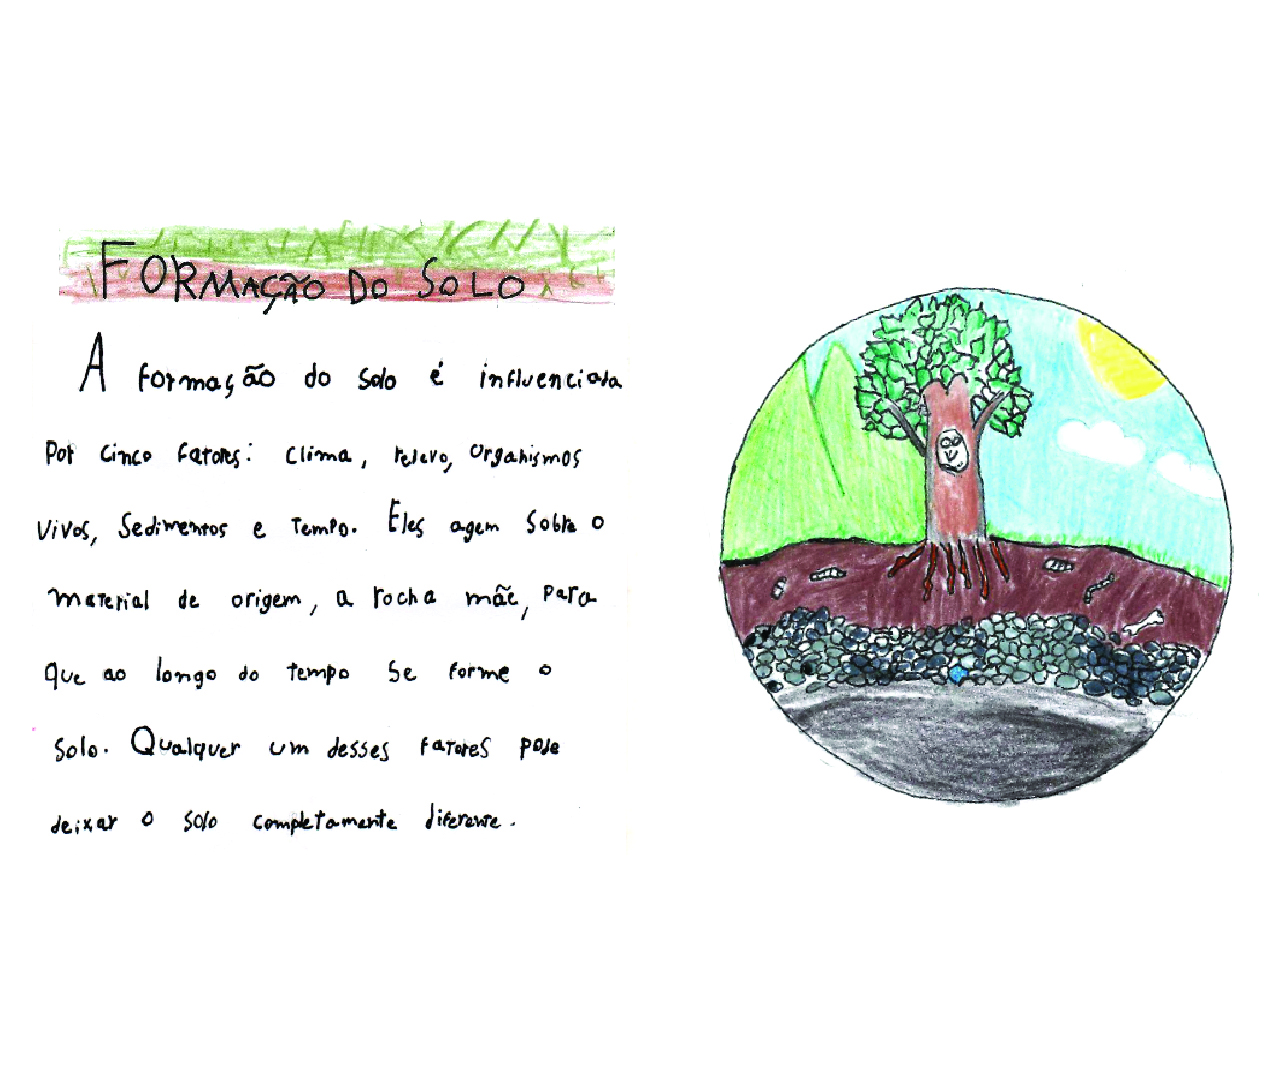 FORMAÇÃO DO SOLO
A formação do solo é influenciada
Por cinco fatores: clima, relevo, organismos
vivos, sedimentos e tempo. Eles agem sobre o
material de origem, a rocha mãe, para
que ao longo do tempo se forme o
solo. Qualquer um desses fatores pode
deixar o solo completamente diferente.